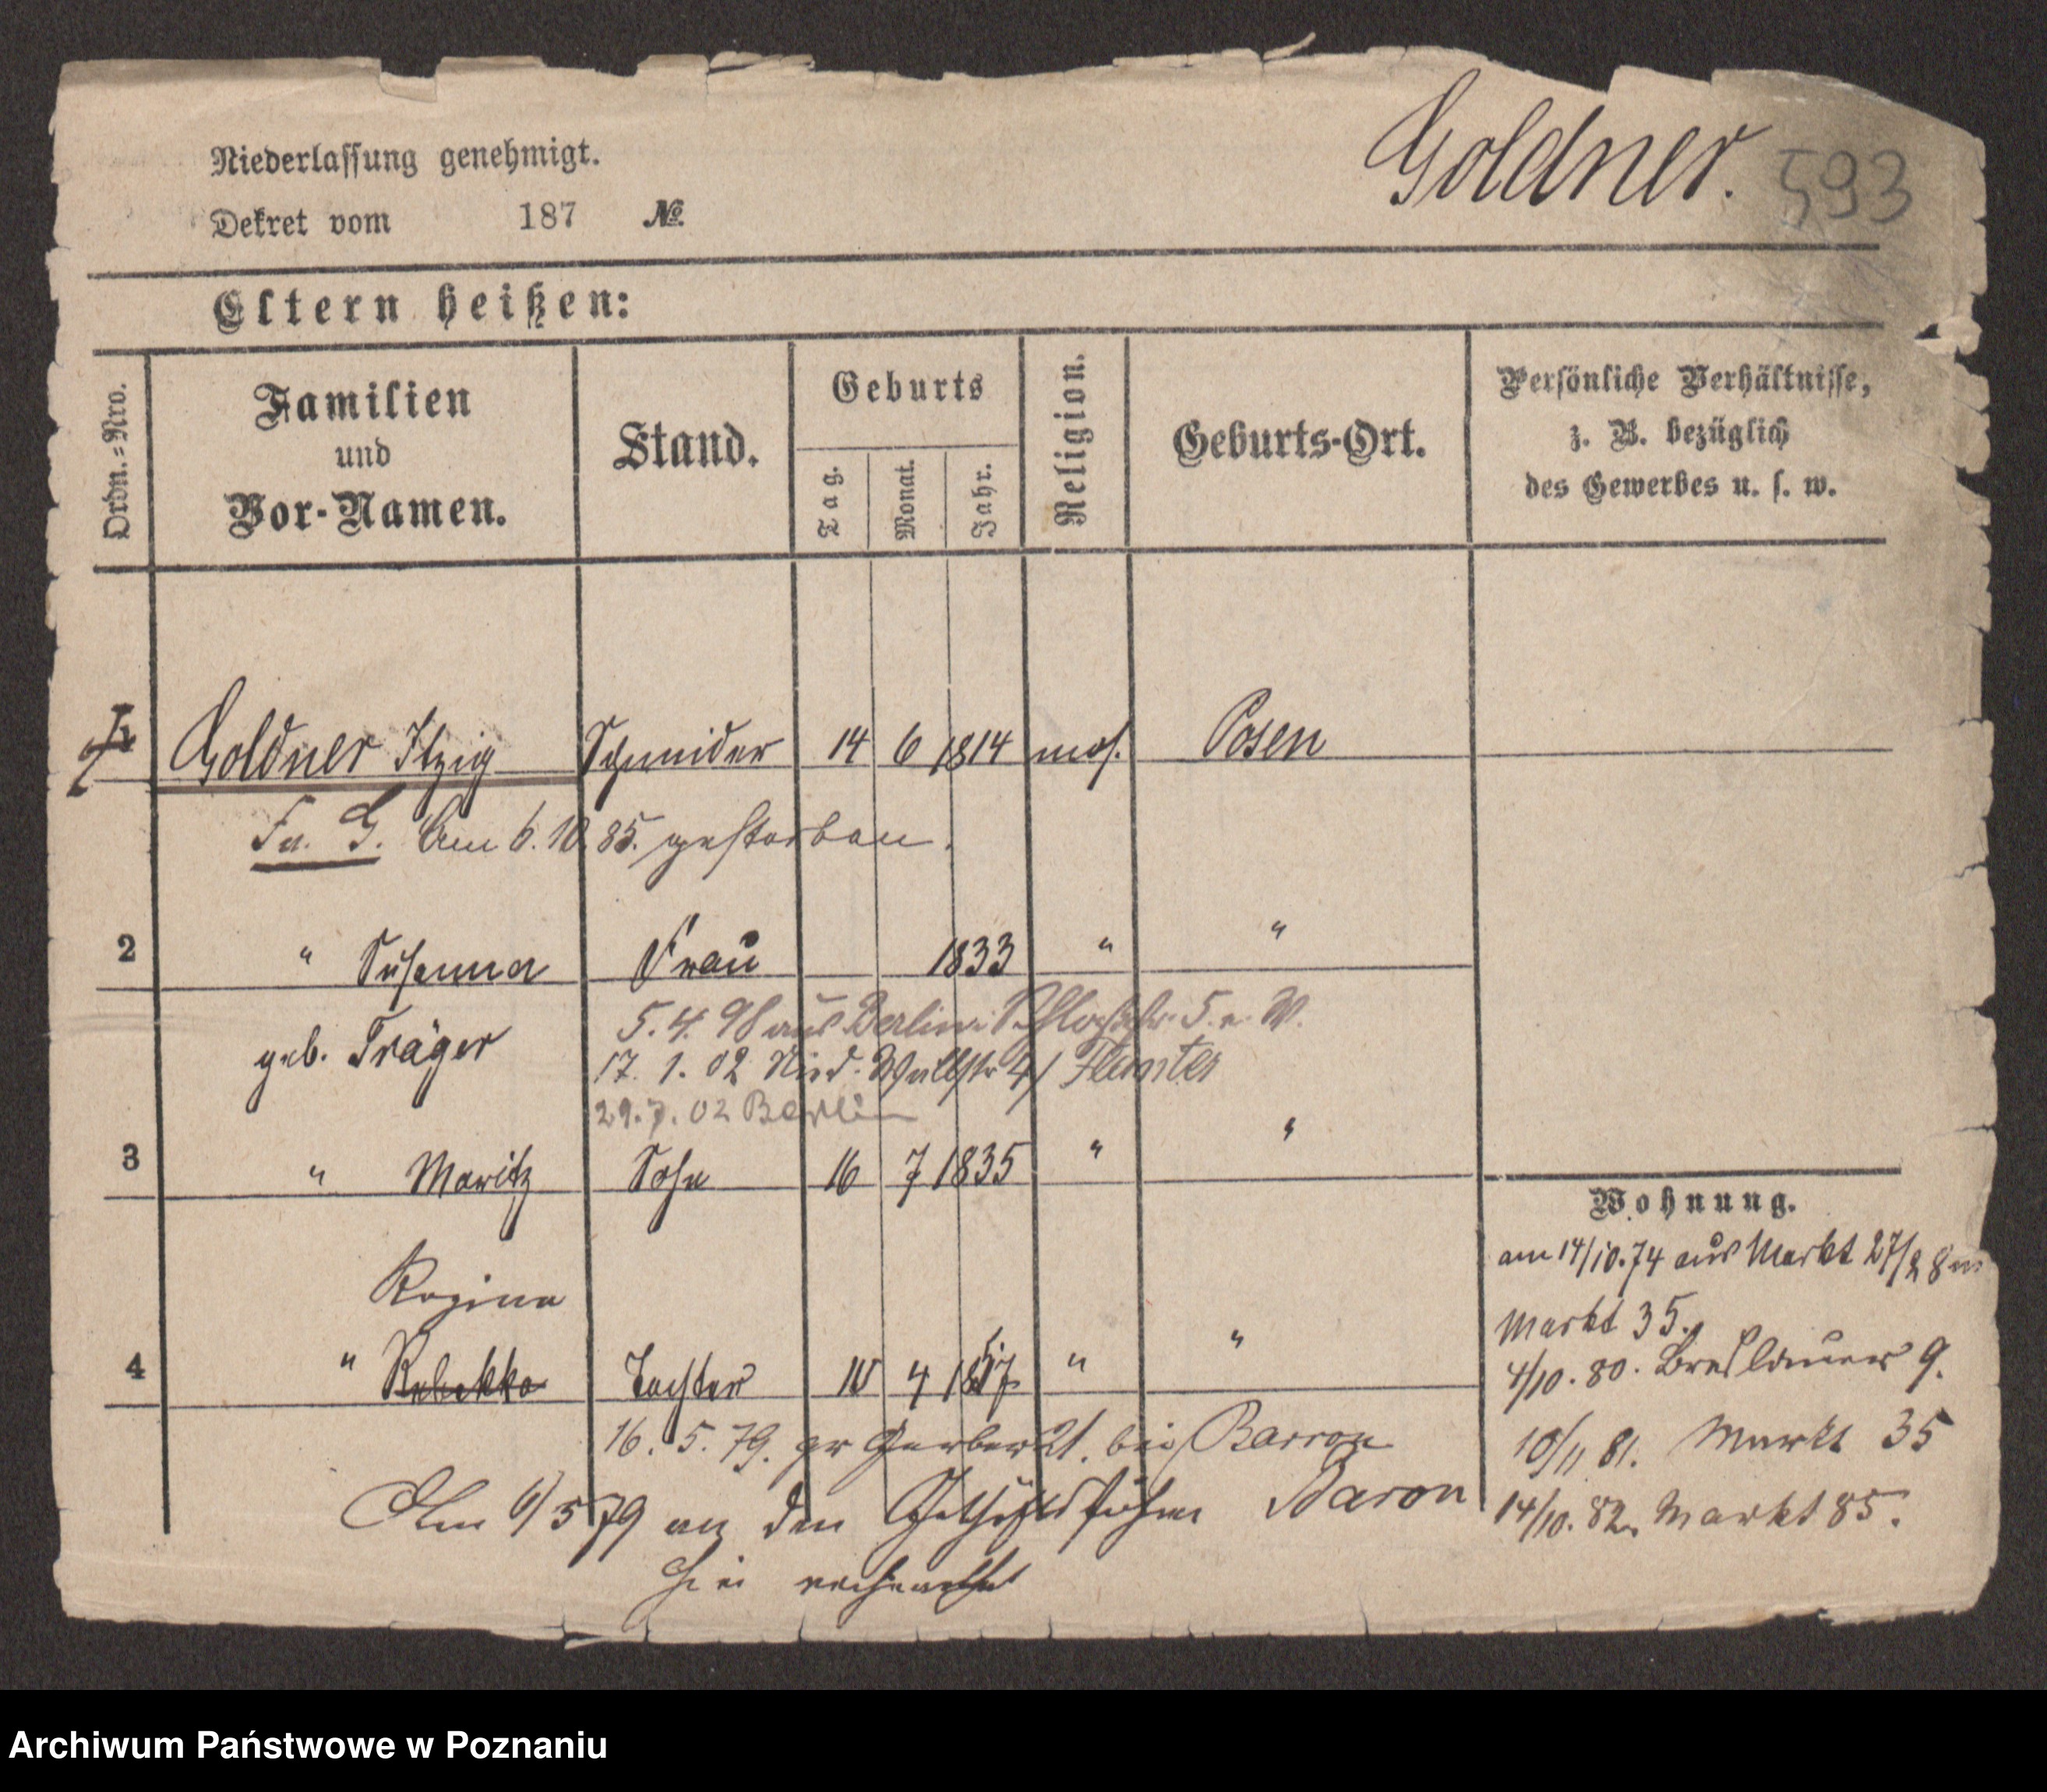 Goldner. 593
Niederlassung genehmigt.
Dekret vom 187 №
Eltern heißen:
Ordn.=Nro.
Familien
und
Vor-Namen.
Stand.
Geburts
Tag.
Monat.
Jahr.
Religion.
Geburts-Ort.
Persönliche Verhältnisse,
z. B. bezüglich
des Gewerbes u. s. w.
Goldner Itzig Schneider 14 6 1814 mos. Posen
Fr. G. Am 6. 10. 85. gestorben.
2 " Susanna Frau 1833 " "
geb. Träger
5. 4. 98 aus Berlin Schloßstr. 5. W.
17. 1. 02 Nied. Wallstr 4/
29. 7. 02 Berlin
3 " Moritz Sohn 16 7 1835 " "
Regina
4 " Rebekka Tochter 10 4 1857 " "
16. 5. 79. gr Gerber 21. bei Barron
Am 6/5 79 an den Baron
hier
Wohnung.
am 14/10. 74 aus Markt 27/28 n.
Markt 35.
4/10. 80. Breslauer 9.
10/11 81. Markt 35
14/10. 82. Markt 85.
Archiwum Państwowe w Poznaniu